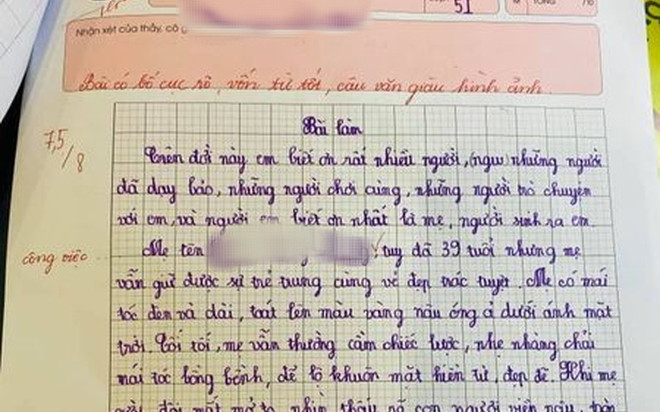 51
Nhận xét của thầy, cô
Bài có bố cục rõ, vốn từ tốt, câu văn giàu hình ảnh.
7,5/8
Bài làm
Trên đời này em biết ơn rất nhiều người, (ngư) những người
đã dạy bảo, những người chơi cùng, những người trò chuyện
với em, và người em biết ơn nhất là mẹ, người sinh ra em.
công việc
Mẹ tên tuy đã 39 tuổi nhưng mẹ
vẫn giữ được sự trẻ trung cùng vẻ đẹp trác tuyệt. Mẹ có mái
tóc đen và dài, toát lên màu vàng nâu óng ả dưới ánh mặt
trời. Tối tối, mẹ vẫn thường cầm chiếc lược, nhẹ nhàng chải
mái tóc bồng bềnh, để lộ khuôn mặt hiền từ, đẹp đẽ. Khi mẹ
đôi mắt mở to nhìn thấy rõ con người viền nâu